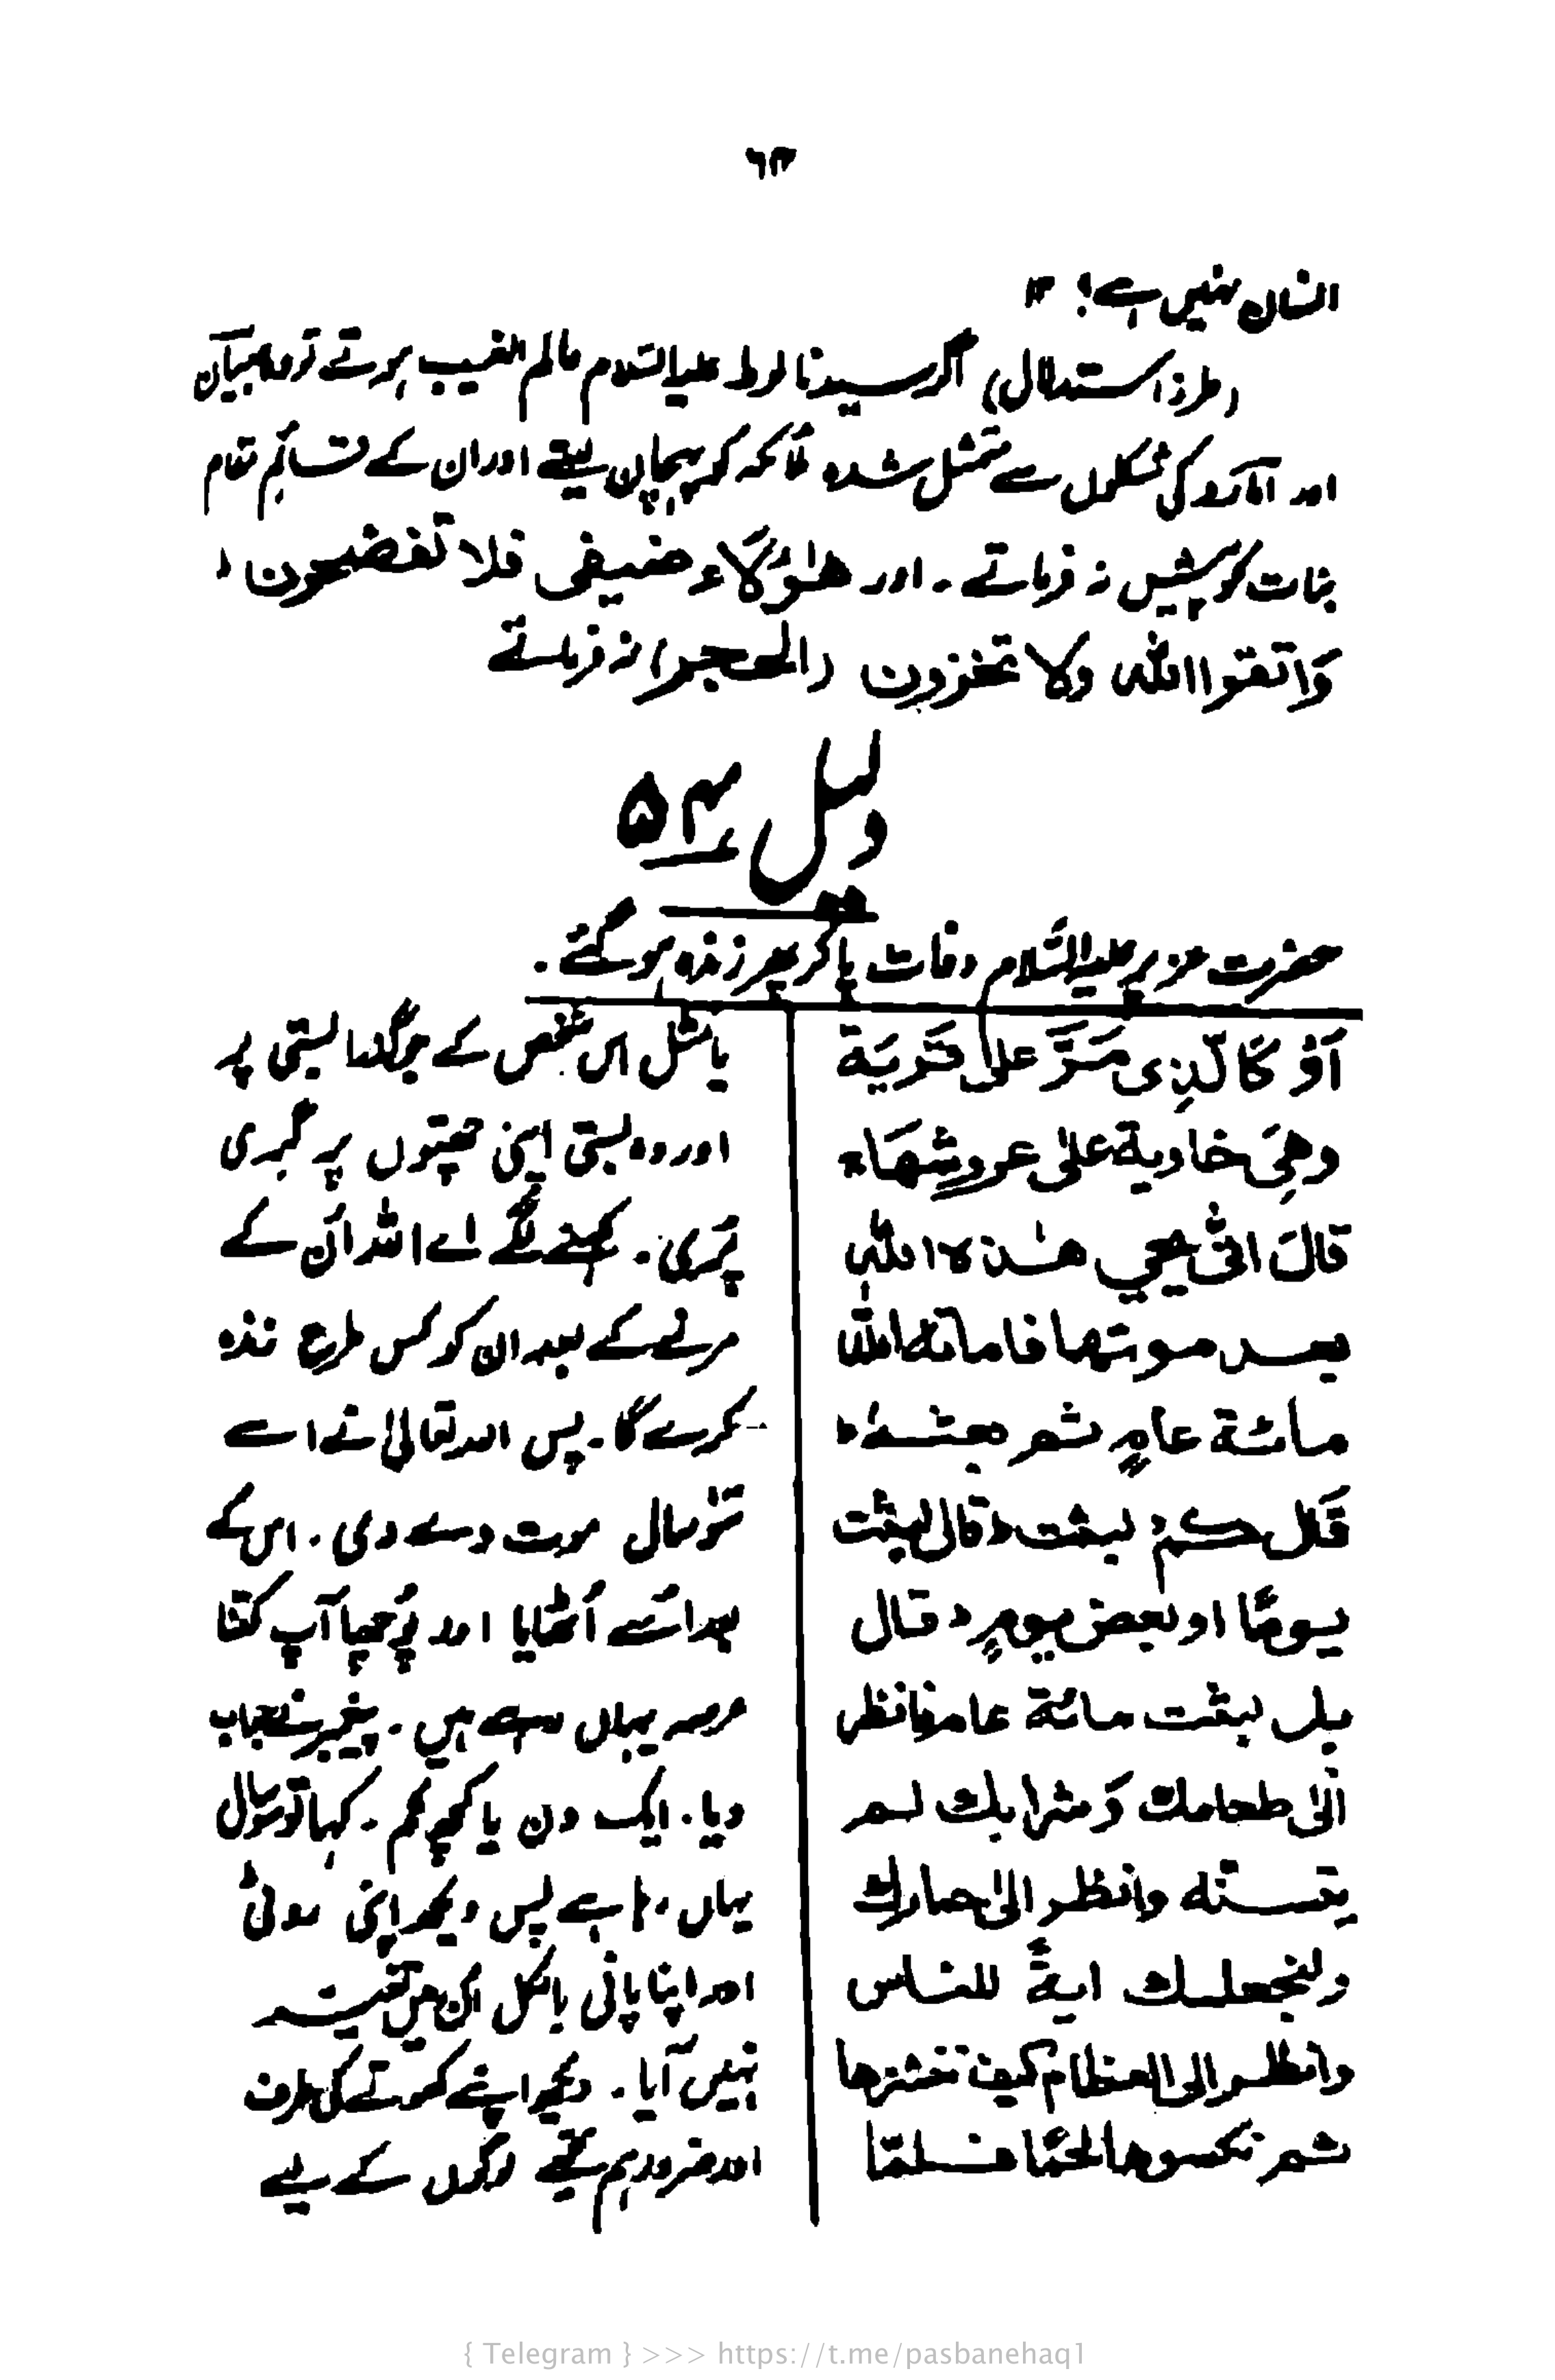 ۶۳
انسان نہیں ہے؟ ۱۳
(طرز استدلال) اگر سیدنا لوط علیہ السلام عالم الغیب ہوتے تو
اور امارد کی شکلوں سے متمثل شدہ ملائکہ کو پہچان لیتے اور ان کے قائم مقام
بنات کو پیش نہ فرماتے ۔ اور هٰؤلاء ضیفی فلا تفضحون ،
وَاتقوا الله ولا تخزون (الحجر) نہ فرماتے
دلیل ۵۴
حضرت عزیر علیہ السّلام وفات پا کر پھر زندہ ہو گئے ۔
اَوْ كَا لَّذِى مَرَّ على قَريَة
وهِىَ خاوية علىٰ عروشِهَاء
قالَ انّٰى يحيي هٰذه الله
بعد موتها فاماته الله
مائة عامٍ ثم بعثهٗ ط
قَال كمْ لبثت ط قال لبثت
يومًا او بعض يومٍ ط قال
بل لبثت مائة عام فانظر
الىٰ طعامك وَشرابك لم
يتسنه وانظر الىٰ حمارك
ولنجعلك ايةً للناس
وانظر الى العظام كيف ننشزها
ثم نكسوها لحمًا فلمّا
یا مثل اس شخص کے جو گذرا بستی پر
اور وہ بستی اپنی چھتوں پر گری
پڑی ۔ کہنے لگے اے اللہ ان کے
مرنے کے بعد ان کو کس طرح زندہ
کرے گا ۔ پس اللہ تعالیٰ نے اسے
سَو سال موت دے دی ۔ اس کے
بعد اسے اُٹھایا اور پُوچھا آپ کتنا
عرصہ یہاں رہے ہیں ۔ پیغمبر نے جواب
دیا ۔ ایک دن یا کچھ کم ۔ کہا تو سو سال
یہاں رہا ہے پس دیکھ اپنی روٹی
اور اپنا پانی بالکل ان میں تغیر
نہیں آیا ۔ دیکھ اپنے کھوتے کی طرف
اور ضرور ہم تجھے لوگوں کے لیے
{ Telegram } >>> https://t.me/pasbanehaq1